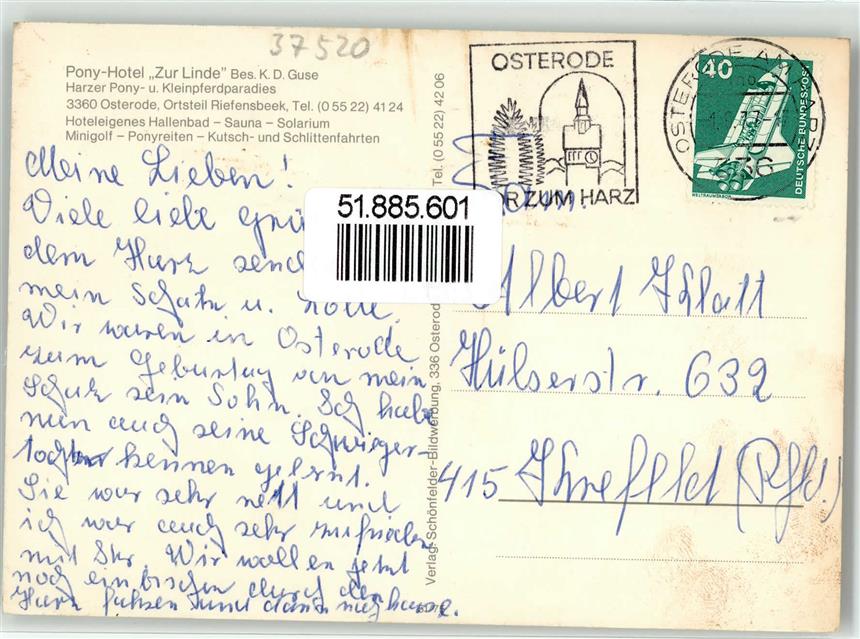 37520
Pony-Hotel „Zur Linde" Bes. K. D. Guse
Harzer Pony- u. Kleinpferdparadies
3360 Osterode, Ortsteil Riefensbeek, Tel. (0 55 22) 41 24
Hoteleigenes Hallenbad – Sauna – Solarium
Minigolf – Ponyreiten – Kutsch- und Schlittenfahrten
Meine Lieben!
Viele liebe Grü
dem Harz send
mein Schatz u.
Wir waren in Osterode
zum Geburtstag von mein
Schatz sein Sohn. Ich habe
nun auch seine Schwieger-
tochter kennen gelernt.
Sie war sehr nett und
ich war auch sehr zufrieden
mit Ihr Wir wollen jetzt
noch ein bischen durch den
Harz fahren und dann nach hause.
Verlag: Schönfelder-Bildwerbung, 336 Osterod
Tel. (0 55 22) 42 06
51.885.601
OSTERODE
OR ZUM HARZ
OSTERODE AM HARZ
40
DEUTSCHE BUNDESPOST
WELTRAUMLABOR
Fam.
Albert
Hülserstr. 632
415 Krefeld (Rhld.)